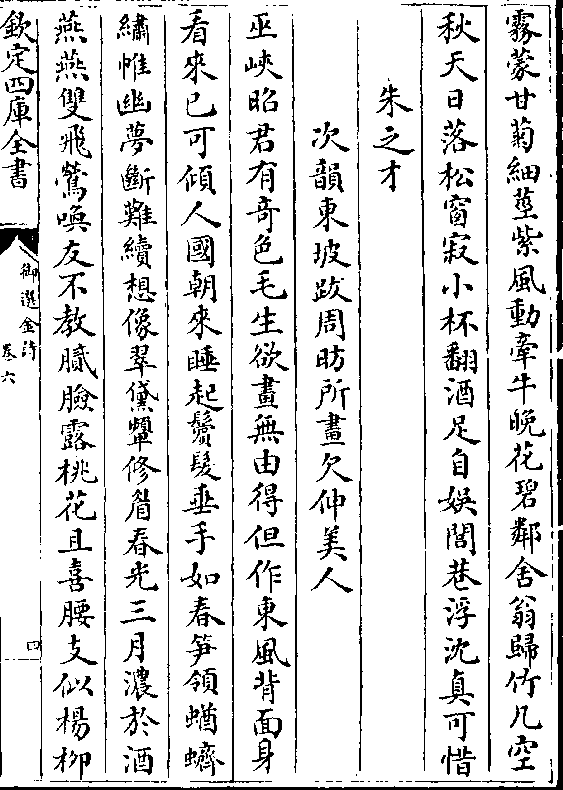 霧蒙甘菊細莖紫風動牽牛晩花碧鄰舍翁歸竹几空
秋天日落松窗寂小杯翻酒足自娛閭巷浮沈真可惜
朱之才
次韻東坡跋周昉所畫欠伸美人
巫峽昭君有奇色毛生欲畫無由得但作東風背面身
看來已可傾人國朝來睡起鬢髮垂手如春笋領蝤蠐
繡帷幽夢斷難續想像翠黛顰修眉春光三月濃於酒
燕燕雙飛鶯喚友不教膩臉露桃花且喜腰支似楊柳
欽定四庫全書
御選金詩
卷六
四